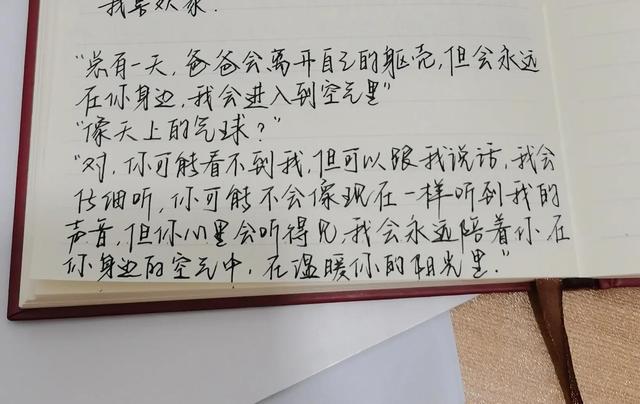 我喜欢家.
“总有一天,爸爸会离开自己的躯壳,但会永远
在你身边,我会进入到空气里”
“像天上的气球?”
“对,你可能看不到我,但可以跟我说话,我会
仔细听,你可能不会像现在一样听到我的
声音,但你心里会听得见,我会永远陪着你在
你身边的空气中,在温暖你的阳光里.”